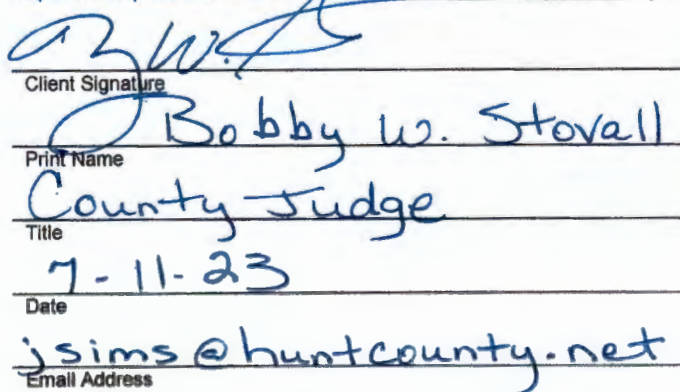 Client Signature
Bobby W. Stovall
Print Name
County Judge
Title
7-11-23
Date
jsims@huntcounty.net
Email Address